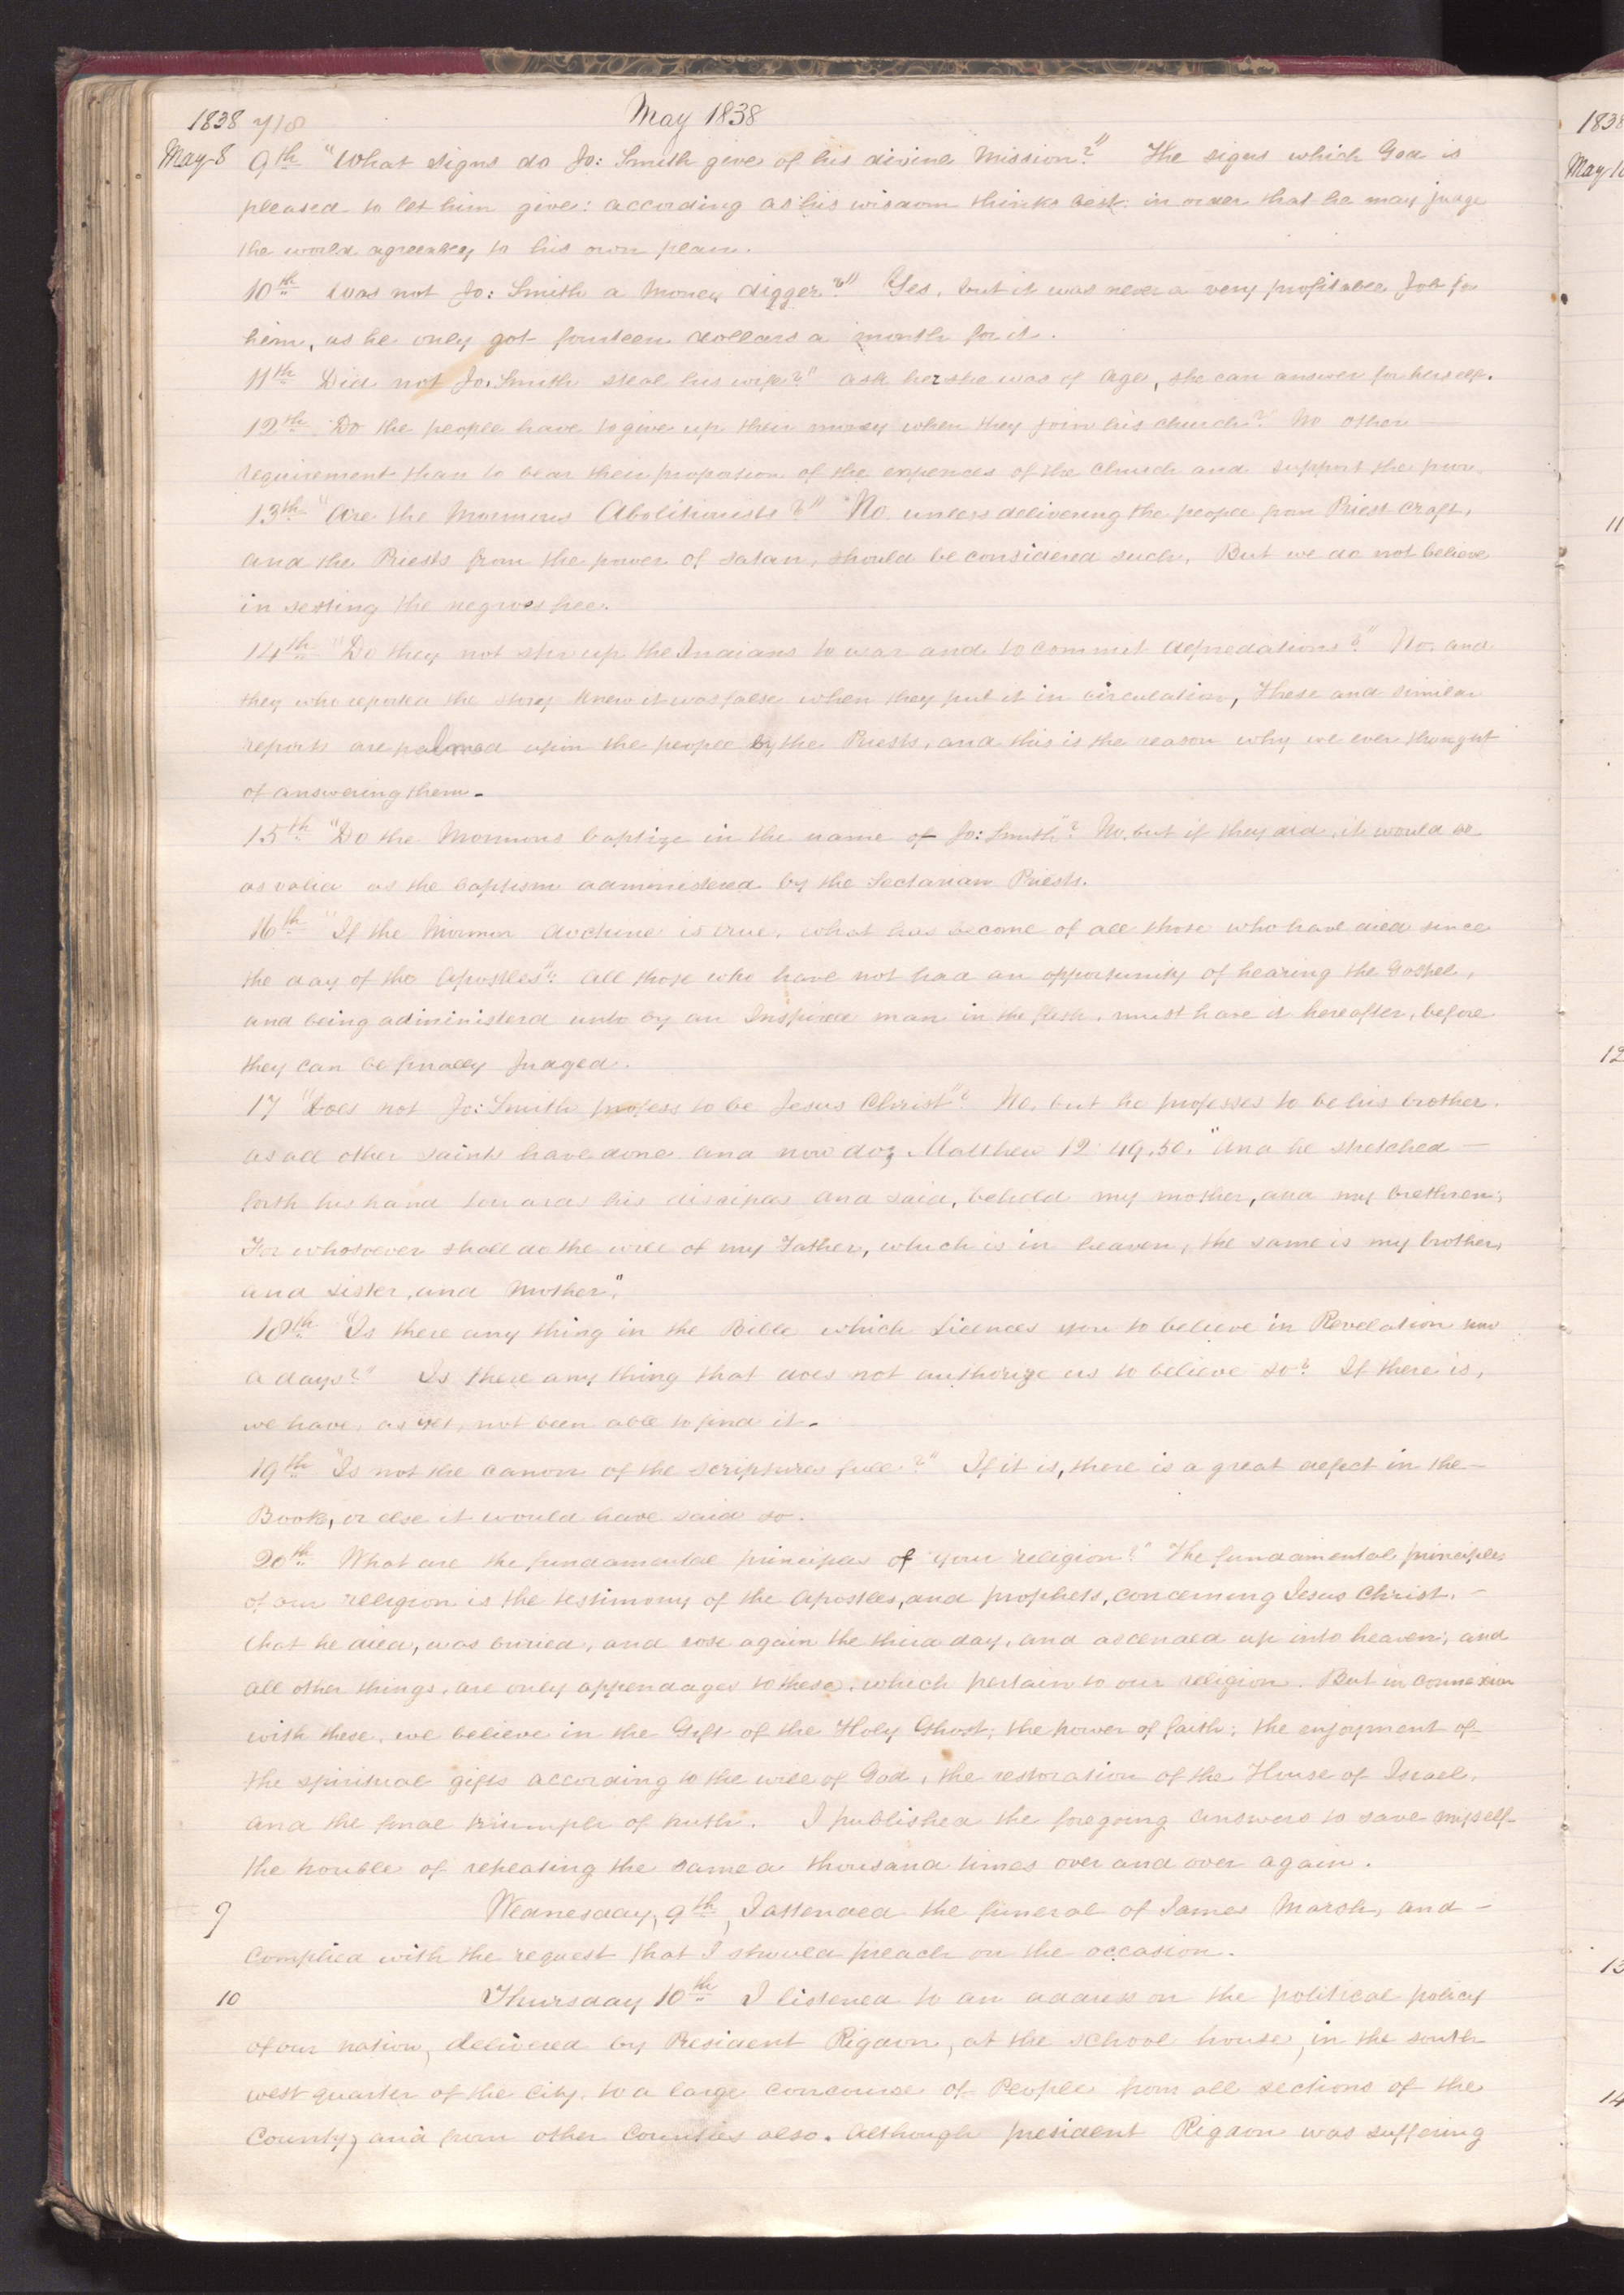 1838 718 May 1838
May 8 9th "What signs do Jo: Smith give of his divine Mission?" The signs which God is
pleased to let him give: according as his wisdom thinks best: in order that he may judge
the world agreeably to his own plan.
10th Was not Jo: Smith a Money digger?" Yes, but it was never a very profitable Job for
him, as he only got fourteen dollars a month for it.
11th Did not Jo. Smith steal his wife?" ask her she was of age, she can answer for herself.
12th Do the people have to give up their money when they join his church? No other —
requirement than to bear their proportion of the expences of the church and support the poor.
13th "Are the Mormons Abolitionists?" No. unless delivering the people from Priest craft,
and the Priests from the power of satan, should be considered such, But we do not believe
in setting the negros free.
14th "Do they not stir up the Indians to war and to commit depredations?" No. and
they who reported the story knew it was false when they put it in circulation, These and similar
reports are palmed upon the people by the Priests, and this is the reason why we ever thought
of answering them.
15th "Do the Mormons baptize in the name of Jo: Smith"? No. but if they did, it would be
as valid as the baptism administered by the Sectarian Priests.
16th "If the Mormon doctrine is true, what has become of all those who have died since
the day of the Apostles"? All those who have not had an opportunity of hearing the Gospel,
and being administerd unto by an Inspired man in the flesh, must have it hereafter, before
they can be finally Judged.
17 "Does not Jo: Smith profess to be Jesus Christ"? No, but he professes to be his brother.
as all other saints have done and now do; Matthew 12 49.50. "And he stretched —
forth his hand towards his disciples and said, behold my mother, and my brethren;
For whosoever shall do the will of my Father, which is in heaven, the same is my brother,
and sister, and Mother".
18th "Is there any thing in the Bible which Licences you to believe in Revelation now
a days?" Is there any thing that does not authorize us to believe so? If there is,
we have, as yet, not been able to find it.
19th "Is not the canon of the scriptures full?" If it is, there is a great defect in the —
Book, or else it would have said so.
20th What are the fundamental principles of your religion?" The fundamental principles
of our religion is the testimony of the Apostles, and prophets, concerning Jesus Christ, —
that he died, was buried, and rose again the third day, and ascended up into heaven; and
all other things, are only appendages to these, which pertain to our religion. But in connexion
with these, we believe in the Gift of the Holy Ghost; the power of faith; the enjoyment of
the spiritual gifts according to the will of God, the restoration of the House of Israel,
and the final triumph of truth. I published the foregoing answers to save myself
the trouble of repeating the same a thousand times over and over again.
9 Wednesday, 9th, I attended the funeral of James Marsh, and —
complied with the request that I should preach on the occasion.
10 Thursday 10th I listened to an address on the political policy
of our nation, delivered by President Rigdon, at the school house, in the south
west quarter of the City, to a large concourse of People from all sections of the
County, and from other Counties also. Although president Rigdon was suffering
1838
May 10
11
12
13
14